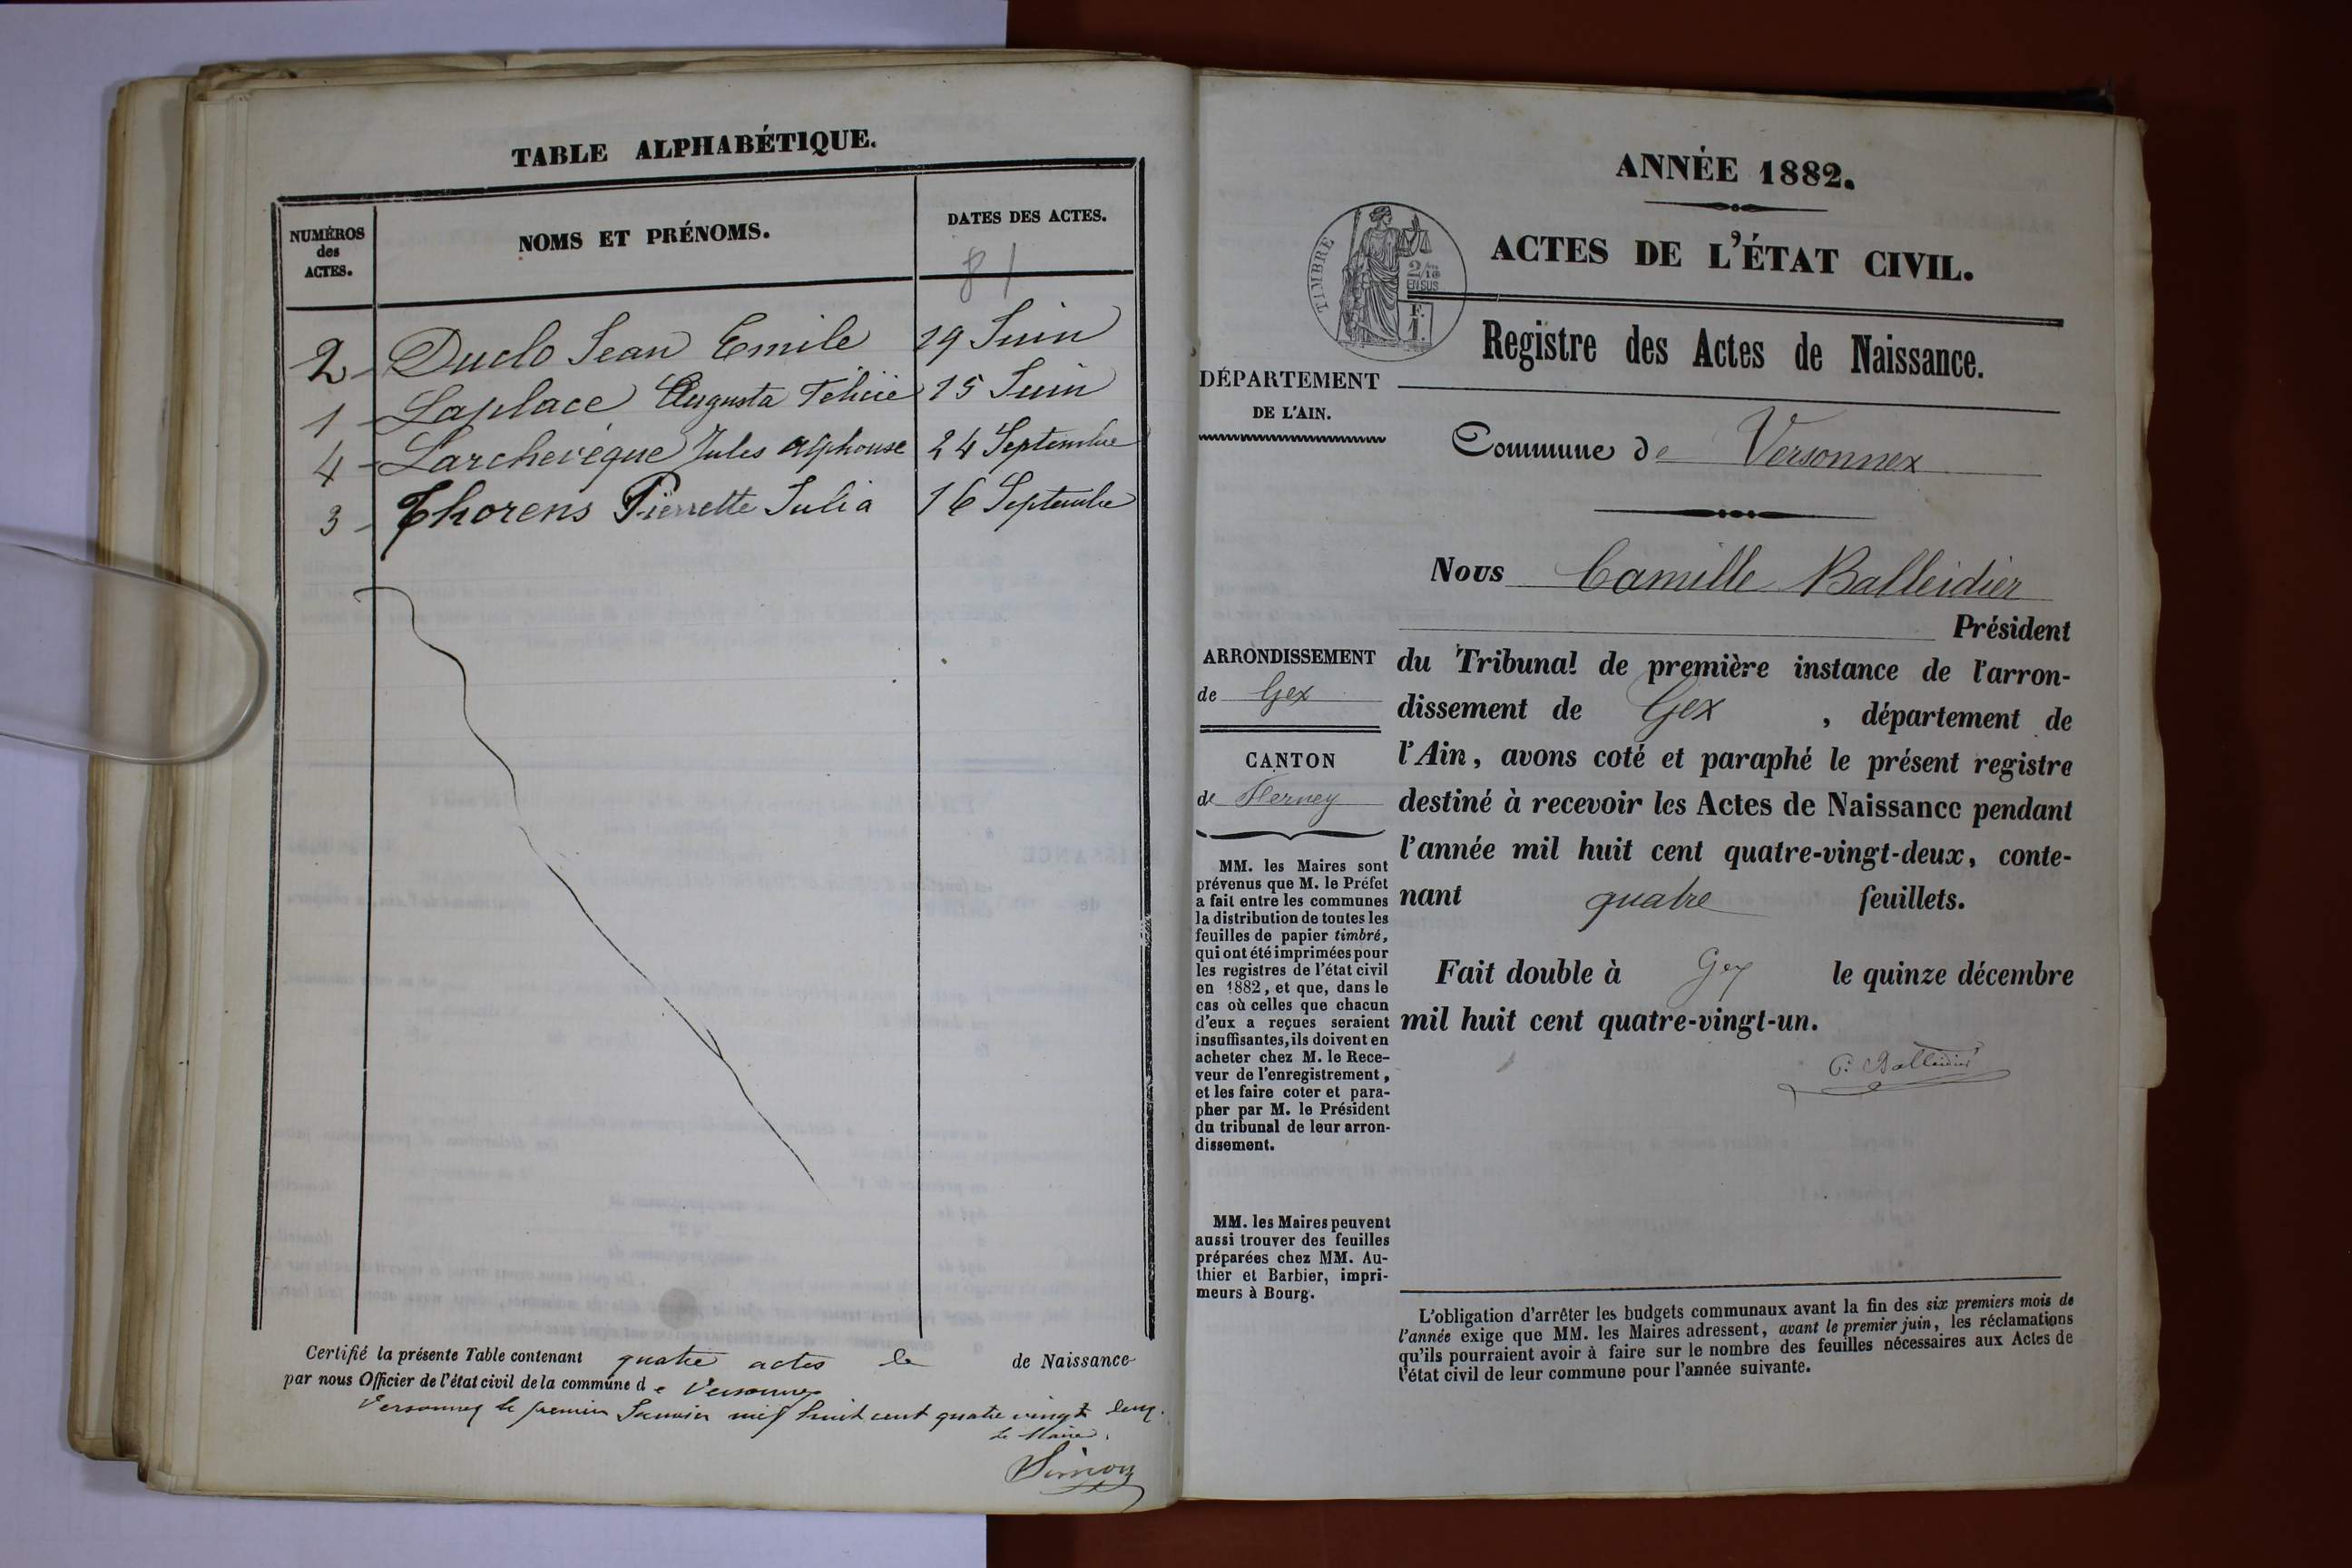 TABLE ALPHABÉTIQUE.
NUMÉROS
des
ACTES.
NOMS ET PRÉNOMS.
DATES DES ACTES.
81
2 - Duclo Jean Emile 29 Juin
1 - Laplace Augusta Félicie 15 Juin
4 - Larchevêque Jules Alphonse 24 Septembre
3 - Thorens Pierrette Julia 16 Septembre
Certifié la présente Table contenant quatre actes de Naissance
par nous Officier de l'état civil de la commune de Versonnex
Versonnex le premier Janvier mil huit cent quatre vingt deux.
Le Maire.
ANNÉE 1882.
ACTES DE L'ÉTAT CIVIL.
TIMBRE
2/10
EN SUS
F.
1.
Registre des Actes de Naissance.
DÉPARTEMENT
DE L'AIN.
Commune de Versonnex
Nous Camille Balleidier
Président
du Tribunal de première instance de l'arron-
dissement de Gex , département de
l'Ain, avons coté et paraphé le présent registre
destiné à recevoir les Actes de Naissance pendant
l'année mil huit cent quatre-vingt-deux, conte-
nant quatre feuillets.
Fait double à Gex le quinze décembre
mil huit cent quatre-vingt-un.
C. Balleidier
ARRONDISSEMENT
de Gex
CANTON
de Ferney
MM. les Maires sont
prévenus que M. le Préfet
a fait entre les communes
la distribution de toutes les
feuilles de papier timbré,
qui ont été imprimées pour
les registres de l'état civil
en 1882, et que, dans le
cas où celles que chacun
d'eux a reçues seraient
insuffisantes, ils doivent en
acheter chez M. le Rece-
veur de l'enregistrement,
et les faire coter et para-
pher par M. le Président
du tribunal de leur arron-
dissement.
MM. les Maires peuvent
aussi trouver des feuilles
préparées chez MM. Au-
thier et Barbier, impri-
meurs à Bourg.
L'obligation d'arrêter les budgets communaux avant la fin des six premiers mois de
l'année exige que MM. les Maires adressent, avant le premier juin, les réclamations
qu'ils pourraient avoir à faire sur le nombre des feuilles nécessaires aux Actes de
l'état civil de leur commune pour l'année suivante.